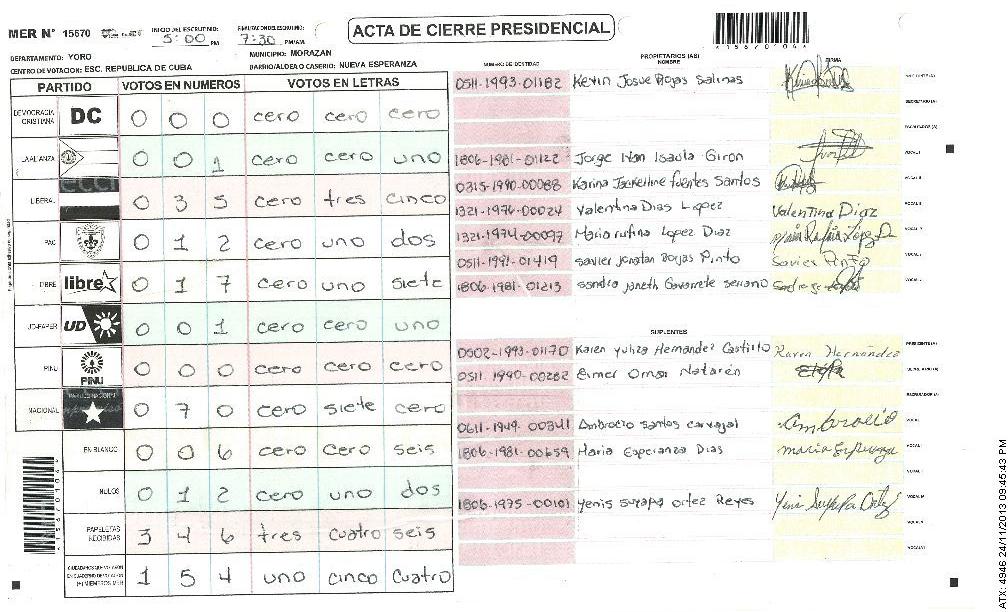 MER N° 15670
INICIO DEL ESCRUTINIO: 5:00 PM
FINALIZACION DEL ESCRUTINIO: 7:30 PM/AM
ACTA DE CIERRE PRESIDENCIAL
DEPARTAMENTO: YORO
MUNICIPIO: MORAZAN
CENTRO DE VOTACION: ESC. REPUBLICA DE CUBA
BARRIO/ALDEA O CASERIO: NUEVA ESPERANZA
PARTIDO VOTOS EN NUMEROS VOTOS EN LETRAS
DEMOCRACIA CRISTIANA DC 0 0 0 cero cero cero
LA ALIANZA 0 0 1 cero cero uno
LIBERAL 0 3 5 cero tres cinco
PAC 0 1 2 cero uno dos
LIBRE libre 0 1 7 cero uno siete
UD-FAPER UD 0 0 1 cero cero uno
PINU PINU 0 0 0 cero cero cero
NACIONAL 0 7 0 cero siete cero
EN BLANCO 0 0 6 cero cero seis
NULOS 0 1 2 cero uno dos
PAPELETAS RECIBIDAS 3 4 6 tres cuatro seis
CIUDADANOS QUE VOTARON EN CUADERNO DE VOTACION (+) MIEMBROS MER 1 5 4 uno cinco cuatro
NUMERO DE IDENTIDAD PROPIETARIOS (AS) NOMBRE FIRMA
0511-1993-01182 Kevin Josue Rojas Salinas
SECRETARIO (A)
ESCRUTADOR (A)
1806-1981-01122 Jorge Ivan Isaula Giron VOCAL I
0315-1990-00088 Karina Jackelline fuentes Santos VOCAL II
1321-1976-00024 Valentina Dias Lopez Valentina Diaz
1321-1974-00097 Maria rufina Lopez Diaz
0511-1991-01419 savier jonatan Borjas Pinto Savier Pinto
1806-1981-01213 sandra janeth Gavarrete serrano
SUPLENTES
0502-1993-01170 Karen Yuliza Hernandez Castillo Karen Hernández PRESIDENTE (A)
0511-1990-00282 Elmer Omar Nataren SECRETARIO (A)
ESCRUTADOR (A)
0611-1949-00341 Ambrocio santos carvajal Ambrocio
1806-1981-00659 Maria Esperanza Dias maria Esperanza
1806-1975-00101 Yenis suyapa ortez Reyes Yenis Suyapa Ortez
ATX: 4946 24/11/2013 09:45:43 PM